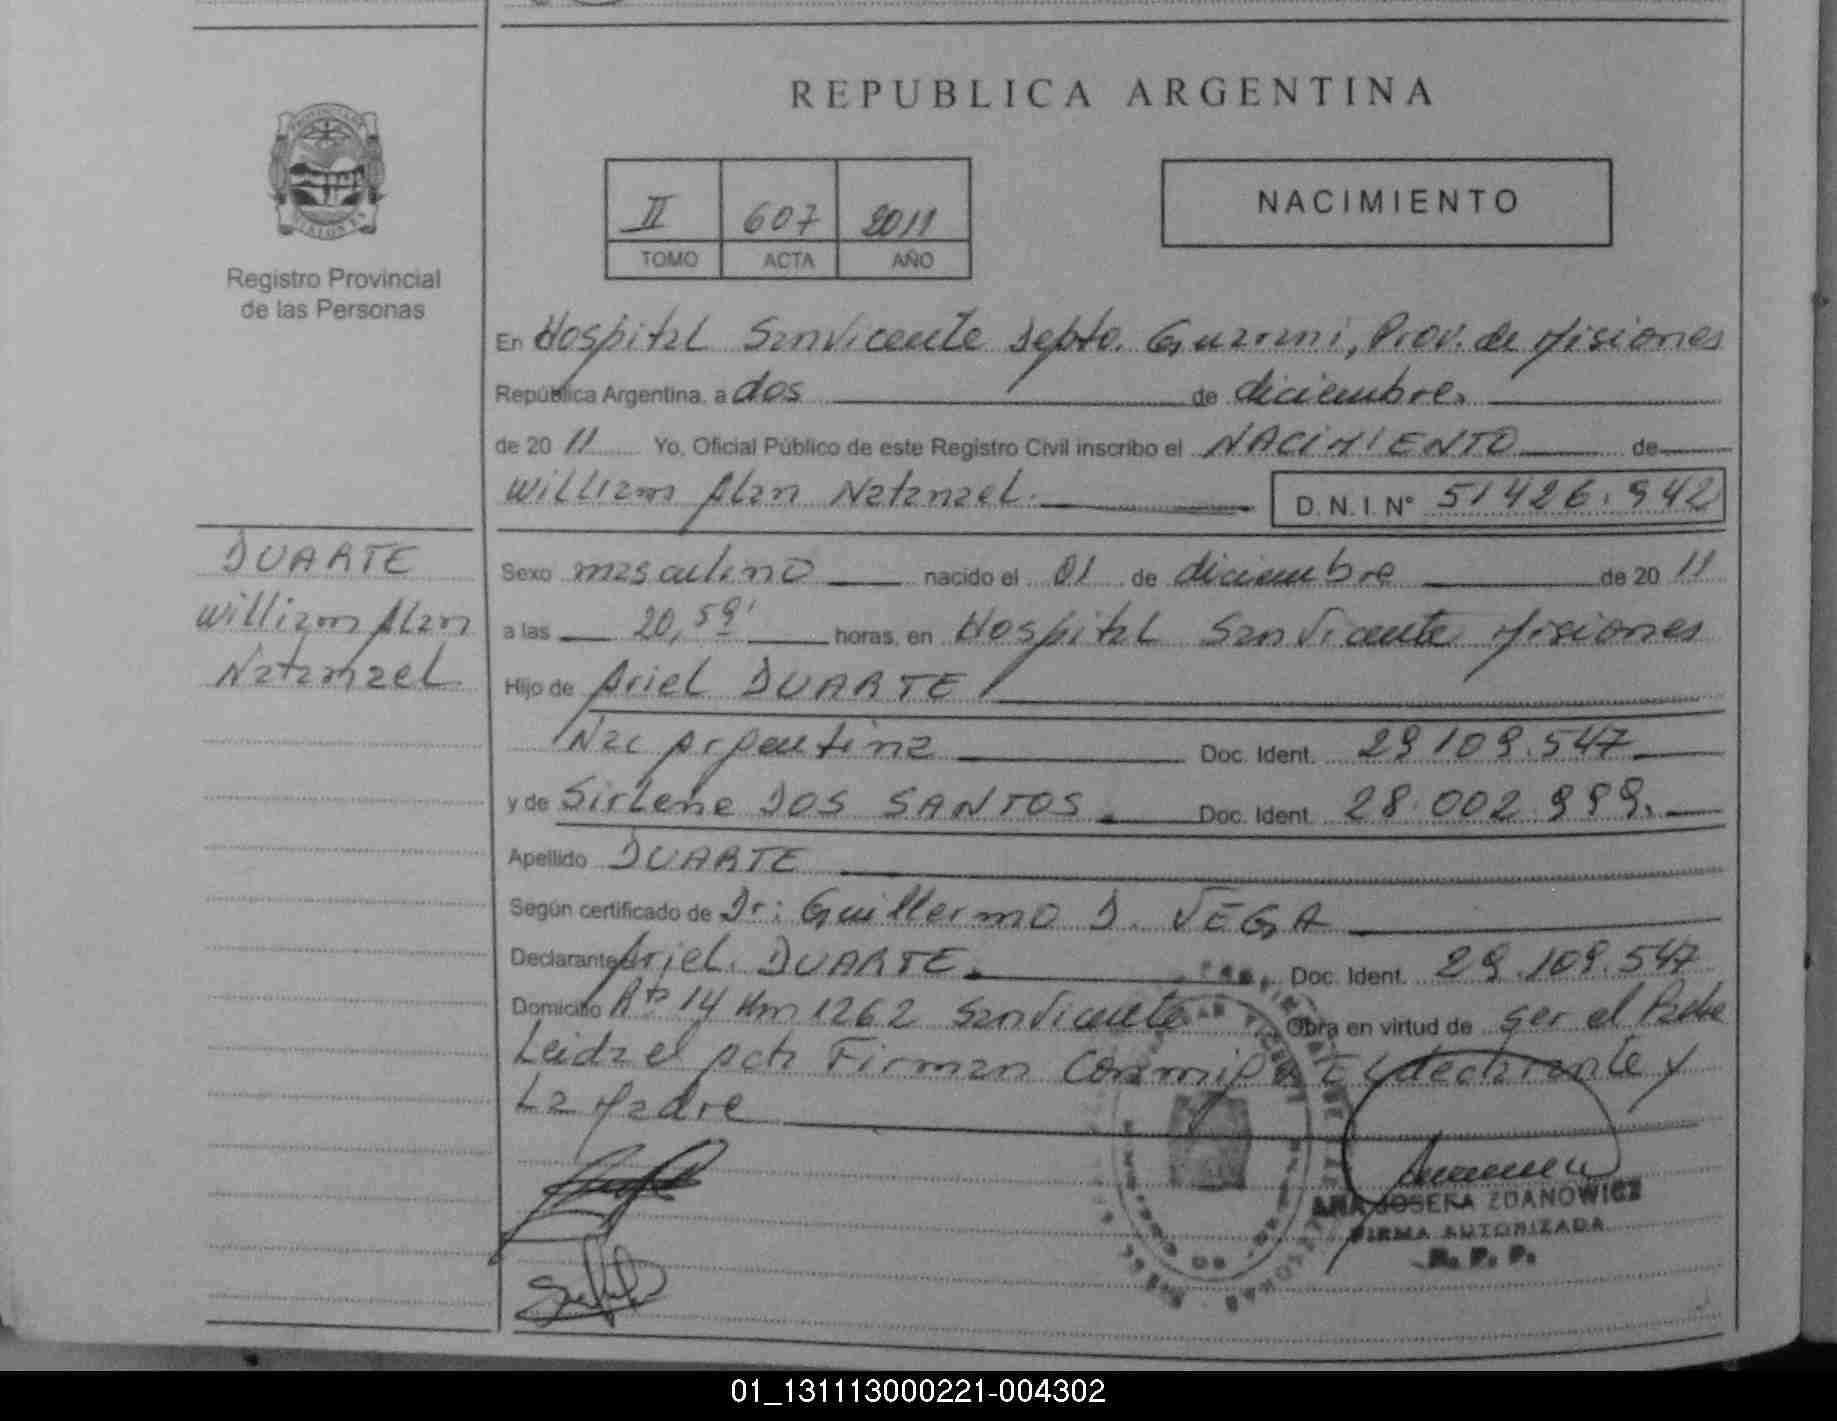 REPUBLICA ARGENTINA
II 607 2011
TOMO ACTA AÑO
NACIMIENTO
Registro Provincial
de las Personas
En Hospital San Vicente Depto. Guarani, Prov. de Misiones
República Argentina, a dos de diciembre.
de 20 11 Yo, Oficial Público de este Registro Civil inscribo el NACIMIENTO de
William Alan Natanael. D.N.I. N° 51426.942
DUARTE
William Alan
Natanael
Sexo masculino nacido el 01 de diciembre de 20 11
a las 20,59' horas, en Hospital San Vicente Misiones
Hijo de Ariel DUARTE
Nac Argentina Doc. Ident. 29109.547
y de Sirlene DOS SANTOS. Doc. Ident. 28.002.999.
Apellido DUARTE
Según certificado de Dr: Guillermo D. VEGA
Declarante Ariel. DUARTE. Doc. Ident. 29.109.547
Domicilio Rta 14 Km 1262 San Vicente Obra en virtud de ser el Padre
Leida el acta Firman Conmigo El declarante y
La Madre
ANA JOSEFA ZDANOWICZ
FIRMA AUTORIZADA
R. P. P.
01_131113000221-004302